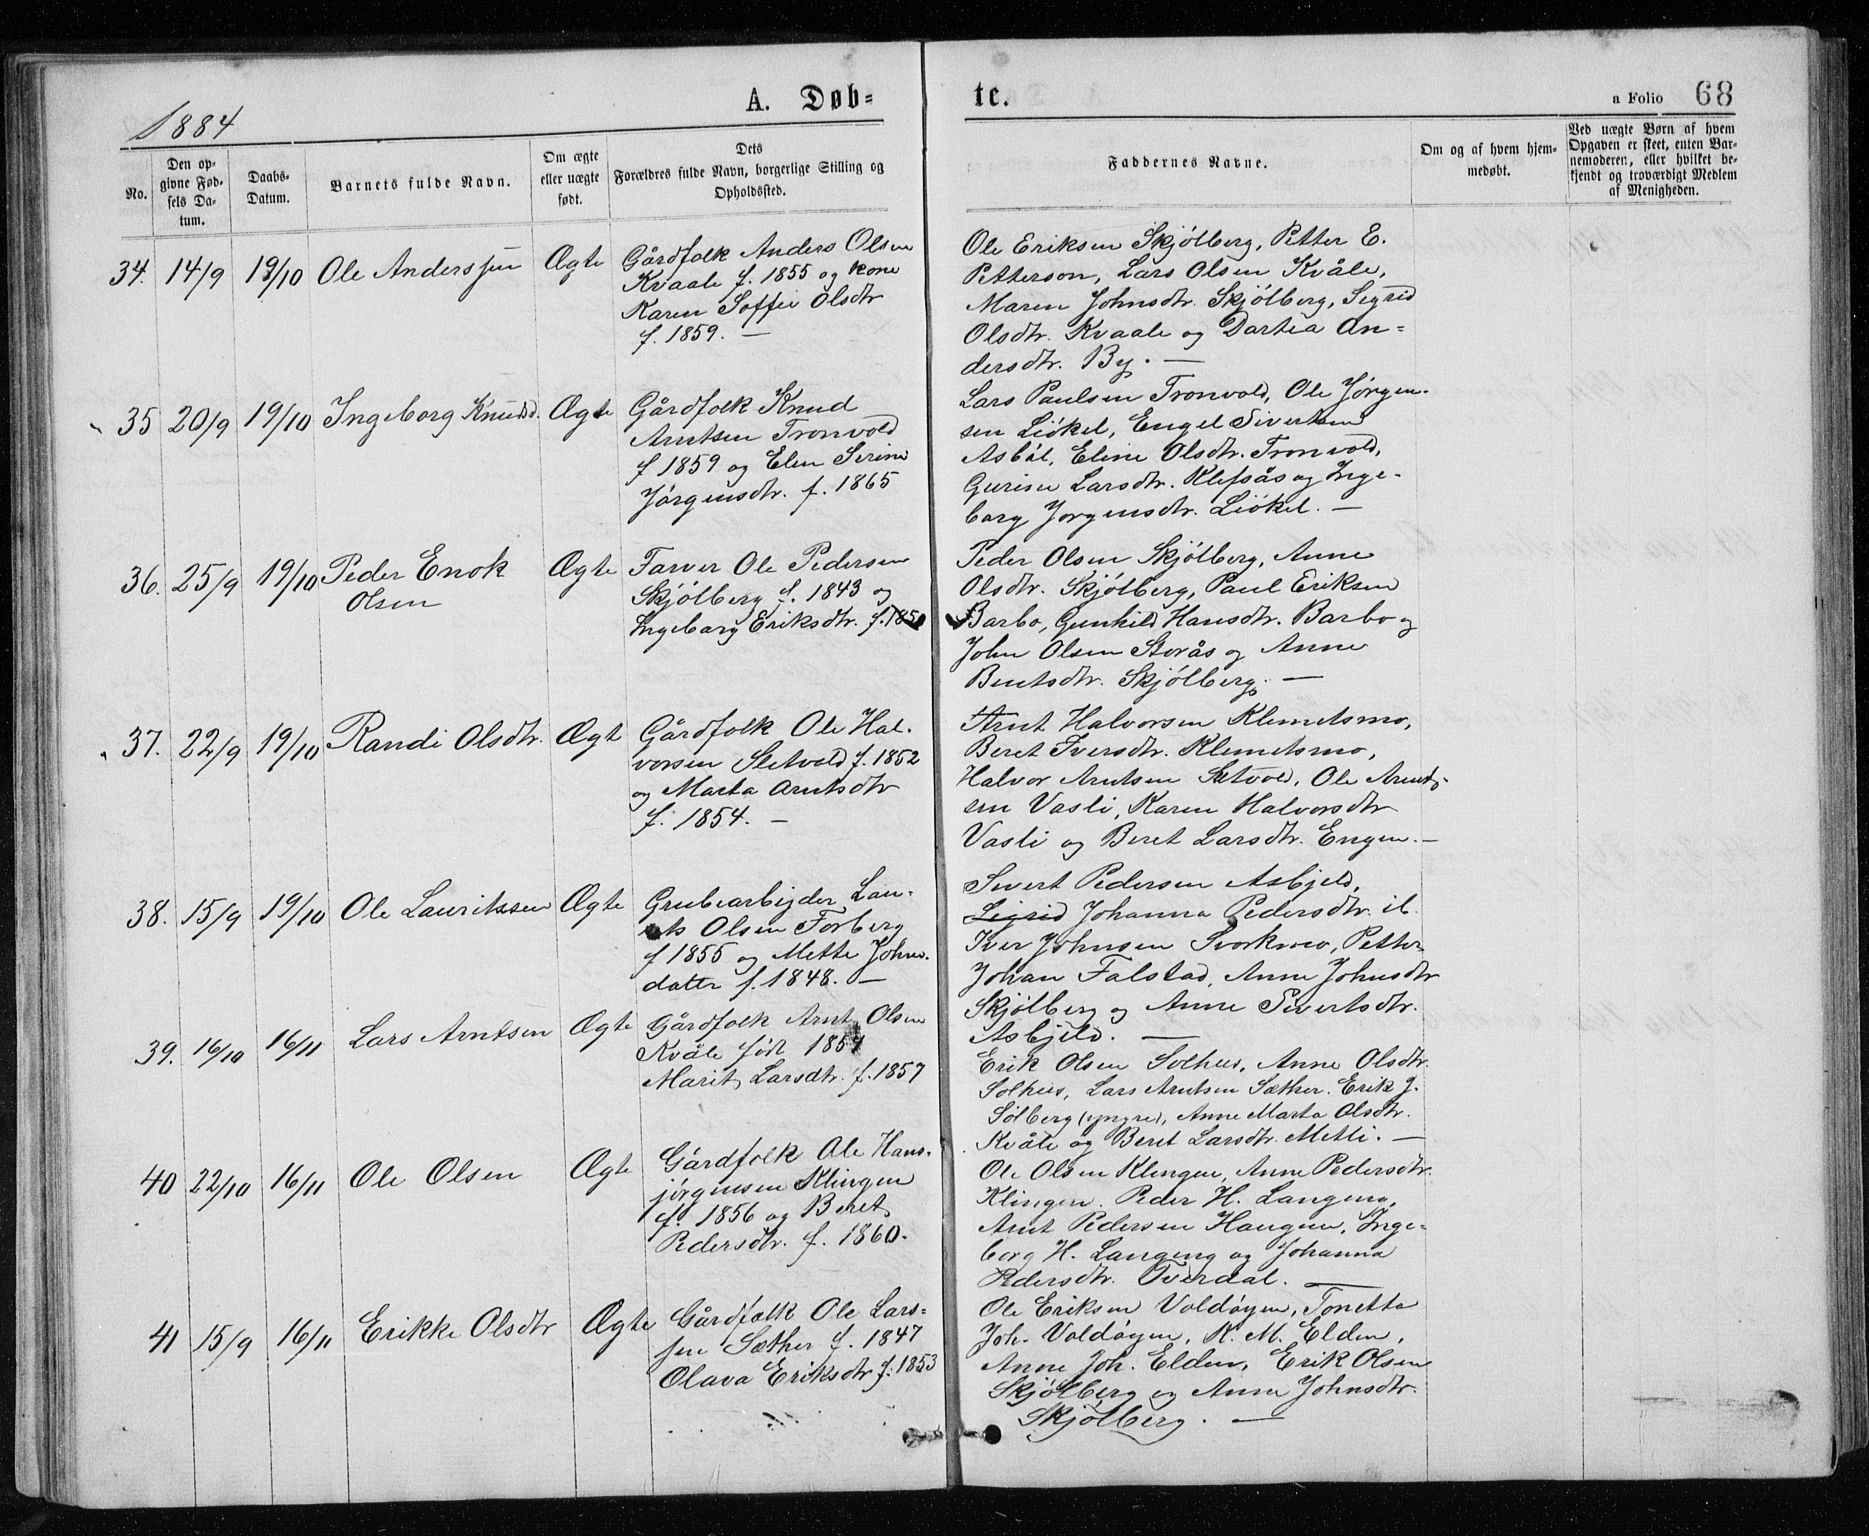 1884
A. Døb= te.
a Folio 68
No.
Den op-
givne Fød-
sels Da-
tum.
Daabs-
Datum.
Barnets fulde Navn.
Om ægte
eller uægte
født.
Dets
Forældres fulde Navn, borgerlige Stilling og
Opholdssted.
Faddernes Navne.
Om og af hvem hjem-
medøbt.
Ved uægte Børn af hvem
Opgaven er skeet, enten Bar-
nemoderen, eller hvilket be-
kjendt og troværdigt Medlem
af Menigheden.
34. 14/9 19/10 Ole Anderssen Ægte
Gårdfolk Anders Olsen
Kvaale f. 1855 og kone
Karen Soffie Olsdtr
f. 1859. —
Ole Eriksen Skjølberg, Petter E.
Petterson, Lars Olsen Kvåle,
Maren Johnsdtr. Skjølberg, Sigrid
Olsdtr. Kvaale og Dartea An=
dersdtr. By. —
35 20/9 19/10 Ingeborg Knudsd. Ægte
Gårdfolk Knud
Arntsen Tronvold
f 1859 og Elen Serine
Jørgensdtr. f. 1865
Lars Paulsen Tronvold, Ole Jørgen-
sen Liøkel, Engel Sivertsen
Asbøl, Eline Olsdtr. Tronvold,
Gurine Larsdtr. Klefsås og Inge-
borg Jørgensdtr. Liøkel. —
36. 25/9 19/10 Peder Enok
Olsen
Ægte
Farver Ole Pedersen
Skjølberg f. 1843 og
Ingeborg Eriksdtr. f. 185
Peder Olsen Skjølberg, Anne
Olsdtr. Skjølberg, Paul Eriksen
Barbo, Gunhild Hansdtr. Barbo og
John Olsen Storås og Anne
Bentsdtr. Skjølberg. —
37. 22/9 19/10 Randi Olsdtr. Ægte
Gårdfolk Ole Hal-
vorsen Sletvold f. 1852
og Marta Arntsdtr
f. 1854. —
Arnt Halvorsen Klemetsmo,
Beret Iversdtr. Klemetsmo,
Halvor Arntsen Sletvold, Ole Arnt-
sen Vasli, Karen Halvorsdtr
Vasli og Beret Larsdtr. Engen. —
38. 15/9 19/10 Ole Lauritssen Ægte
Grubearbejder Lau-
Olsen Forberg
f 1855 og Mette Johns-
datter f. 1848. —
Sivert Pedersen Asbjeld,
Sigrid Johanna Pedersdtr. ib.
Iver Johnsen Svorkmo, Petter
Johan Falstad, Anne Johnsdtr
Skjølberg og Anne Sivertsdtr.
Asbjeld. —
39. 16/10 16/11 Lars Arntsen Ægte
Gårdfolk Arnt Olsen
Kvåle født 1854
Marit Larsdtr. f. 1857
Erik Olsen Solhus, Anne Olsdtr.
Solhus, Lars Arntsen Sæther. Erik J.
Sølberg (yngre), Anne Marta Olsdtr.
Kvåle og Beret Larsdtr. Metli. —
40 22/10 16/11 Ole Olsen Ægte
Gårdfolk Ole Hans-
jørgensen Klingen
f. 1856 og Beret
Pedersdtr. f. 1860.
Ole Olsen Klingen, Anne Pedersdtr.
Klingen. Peder H. Langeng,
Arnt Pedersen Haugen, Inge-
borg H. Langeng og Johanna
Pedersdtr. Tverdal. —
41 15/9 16/11 Erikke Olsdtr Ægte
Gårdfolk Ole Lars=
sen Sæther f. 1847
Olava Eriksdtr f. 1853
Ole Eriksen Voldøyen, Tonetta
Joh. Voldøyen, K. M. Elden,
Anne Joh. Elden, Erik Olsen
Skjølberg og Anne Johnsdtr.
Skjølberg. —